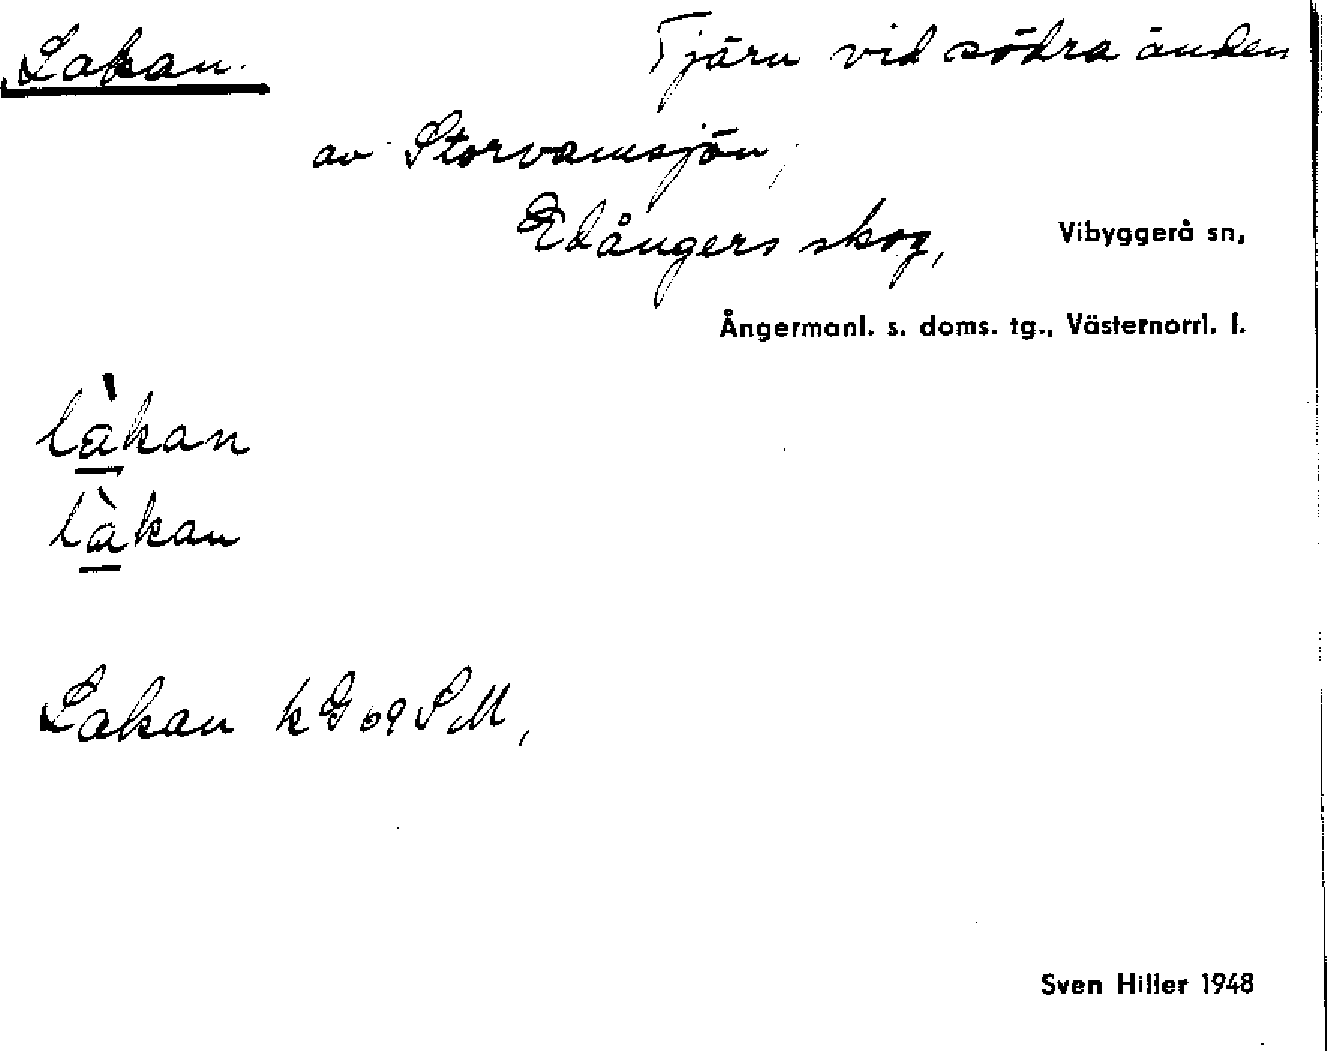 Lakan. Tjärn vid södra änden
av Storvamsjön,
Edångers skog, Vibyggerå sn,
Ångermanl. s. doms. tg., Västernorrl. l.
làkan
làkan
Lakan kG 09 SM,
Sven Hiller 1948